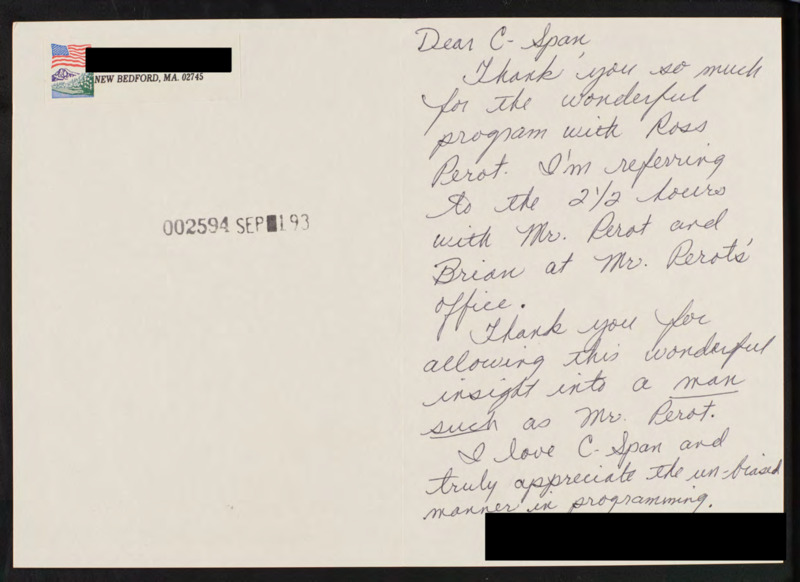 NEW BEDFORD, MA. 02745
002594 SEP 1 93
Dear C-Span,
Thank you so much
for the wonderful
program with Ross
Perot. I'm referring
to the 2 1/2 hours
with Mr. Perot and
Brian at Mr. Perots'
office.
Thank you for
allowing this wonderful
insight into a man
such as Mr. Perot.
I love C-Span and
truly appreciate the un-biased
manner in programming.